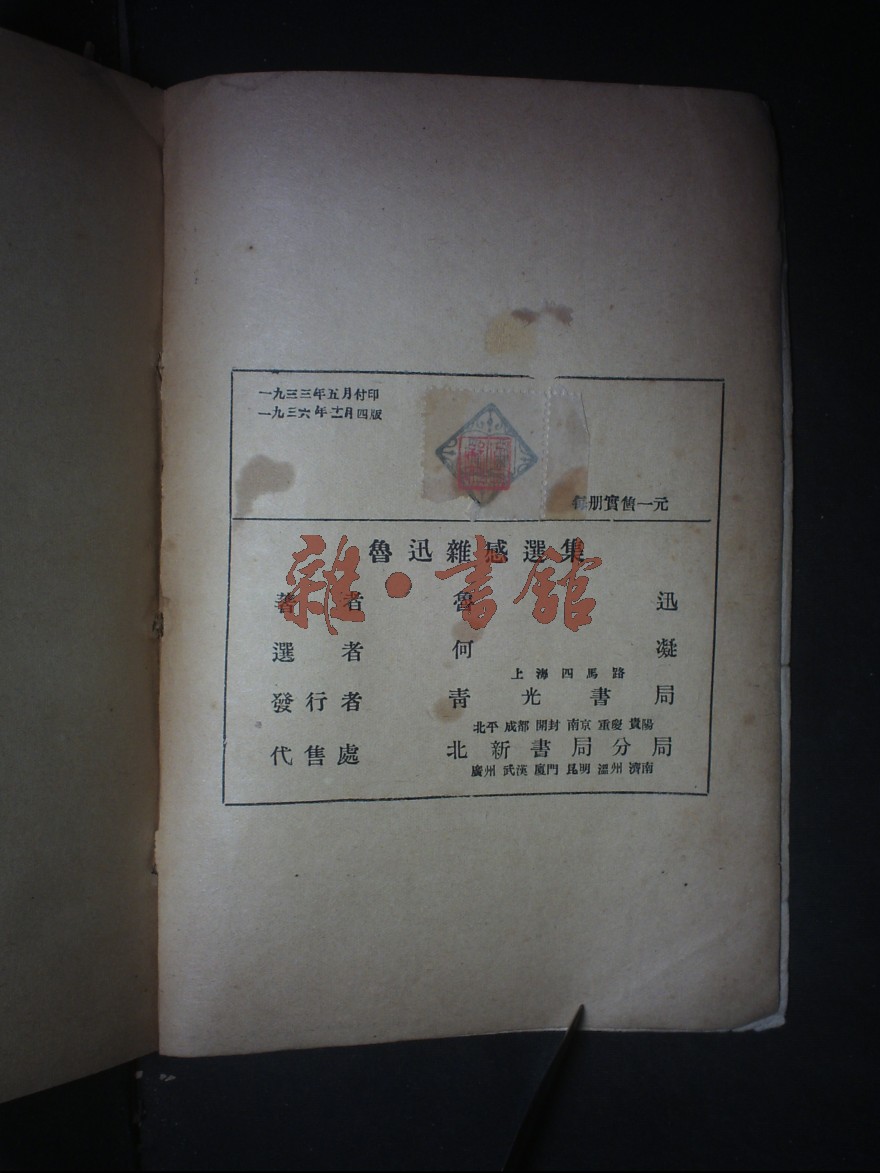 一九三三年五月付印
一九三六年十一月四版
每册實售一元
魯迅雜感選集
雜·書館
著者 魯迅
選者 何凝
上海四馬路
發行者 青光書局
北平 成都 開封 南京 重慶 貴陽
代售處 北新書局分局
廣州 武漢 廈門 昆明 溫州 濟南